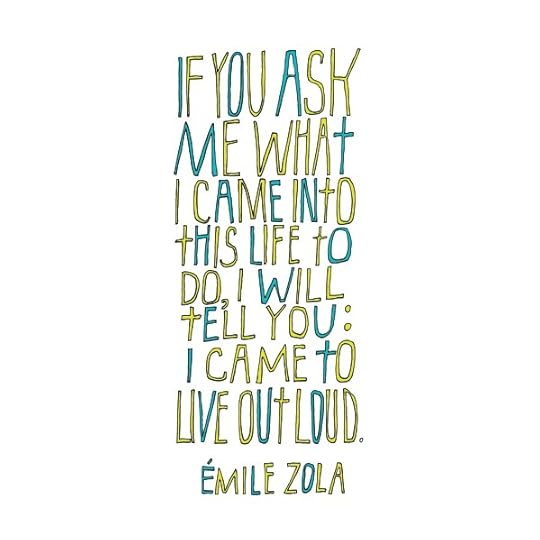 IF YOU ASK
ME WHAT
I CAME INTO
THIS LIFE TO
DO, I WILL
TELL YOU:
I CAME TO
LIVE OUT LOUD.
ÉMILE ZOLA